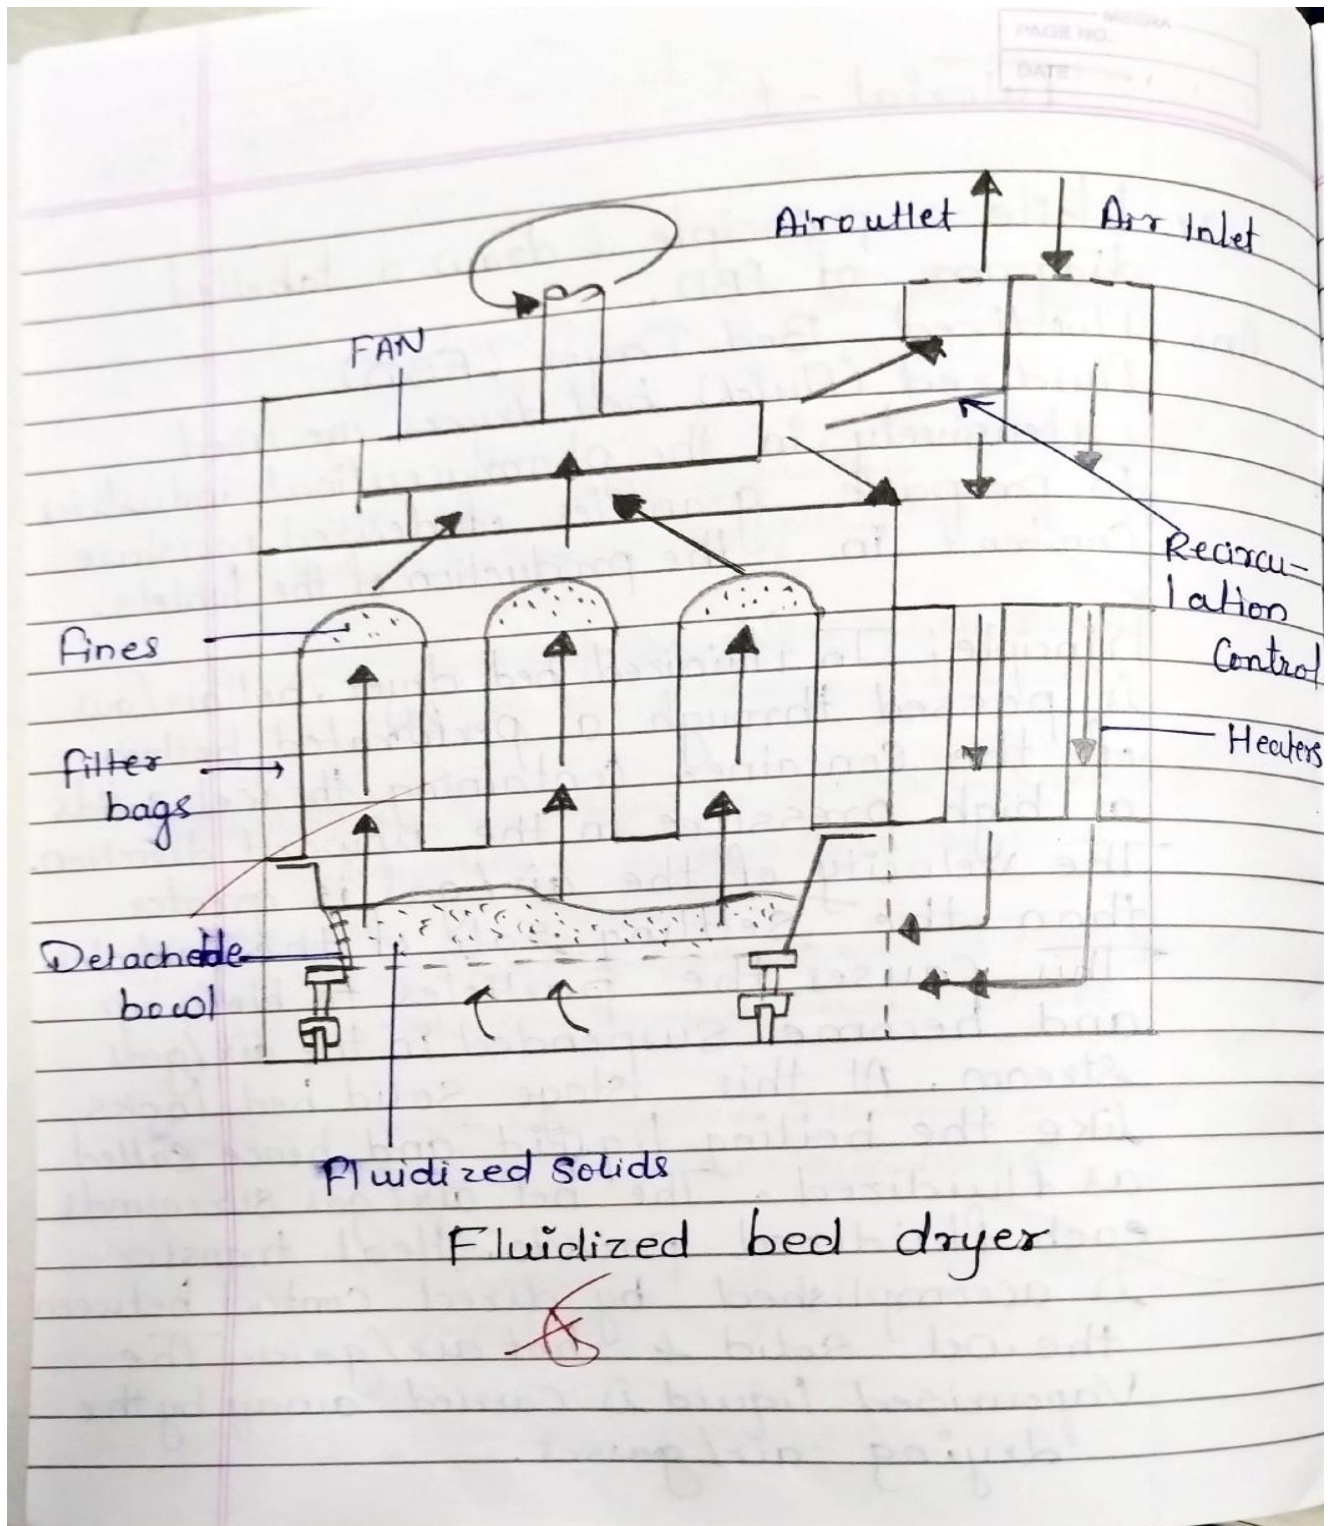 MEERA
PAGE NO.
DATE:
Air outlet
Air Inlet
FAN
Recircu-
lation
Control
fines
Heaters
filter
bags
Detacheble
bowl
Fluidized Solids
Fluidized bed dryer